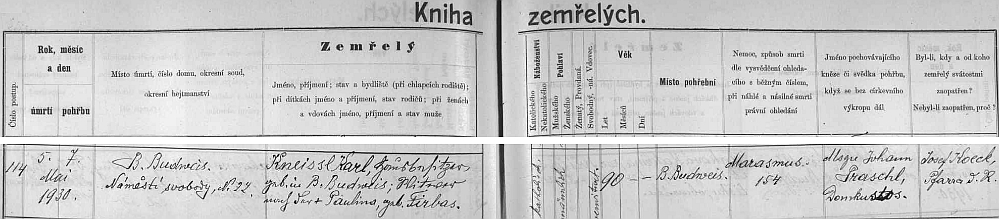 Kniha zemřelých.
Číslo postup.
Rok, měsíc
a den
úmrtí pohřbu
Místo úmrtí, číslo domu, okresní soud,
okresní hejtmanství
Zemřelý
Jméno, příjmení; stav a bydliště (při chlapcích rodiště);
při dítkách jméno a příjmení, stav rodičů; při ženách
a vdovách jméno, příjmení a stav muže
Náboženství
Katolického
Nekatolického
Pohlaví
Mužského
Ženského
Svobodný, -ná, Vdovec,
Věk
Let
Měsíců
Dní
Místo pohřební
Nemoc, způsob smrti
dle vysvědčení ohleda-
cího s běžným číslem,
při náhlé a násilné smrti
právní ohledání
Jméno pochovávajícího
kněze či svědka pohřbu,
když se bez církevního
výkropu dál
Byl-li, kdy a od koho
zemřelý svátostmi
zaopatřen?
Nebyl-li zaopatřen, proč?
114
5. 7.
Mai
1930.
B. Budweis.
Náměstí svobody, N. 27.
Kneissl Karl, Hausbesitzer,
geb. in B. Budweis; Witwer
nach der + Paulina, geb. Ferbas.
katholisch
männlich
verwitwet
90 – –
B. Budweis.
Marasmus.
154
Msgre Johann
Traschl,
Domkustos.
Josef Hoeck,
Pfarrer d. R.